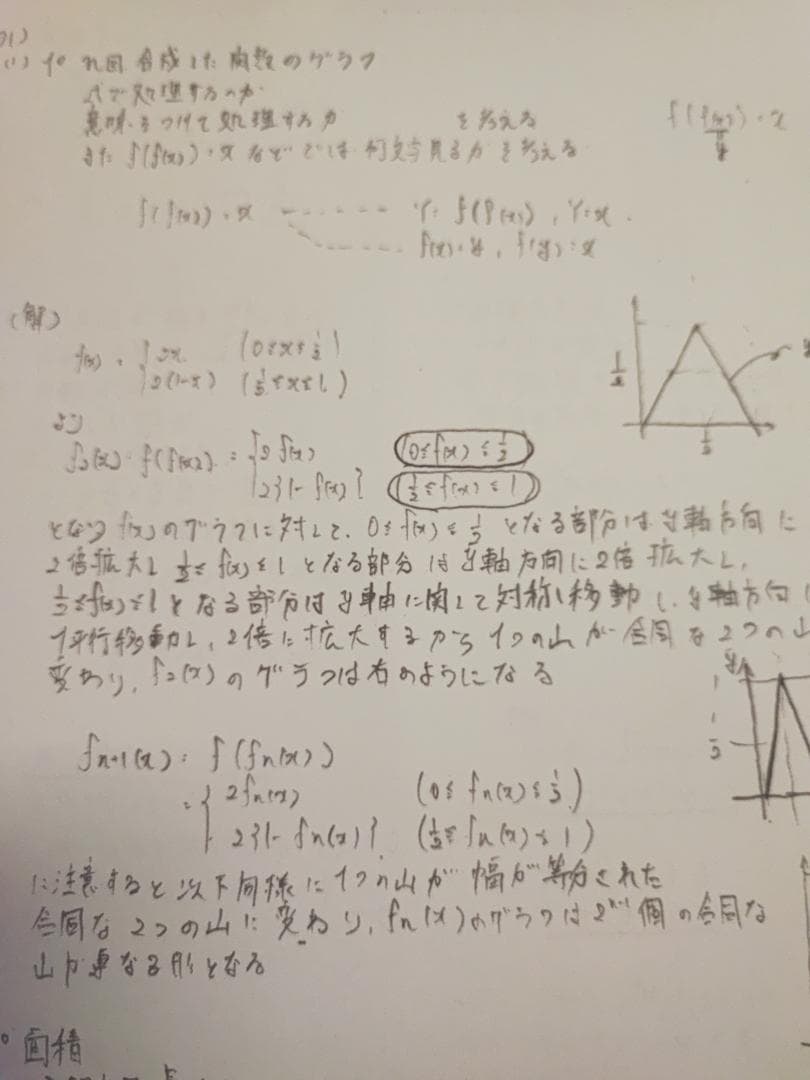 (1) fをn回合成した関数のグラフ
式で処理するのか
意味をつけて処理するか を考える
また f(f(x))=x などでは何文字見るかを考える
f(f(x))=x
f(f(x))=x ------ Y=f(f(x)), Y=x.
f(x)=y, f(y)=x
(解)
f(x) = { 2x (0≤x≤1/2)
2(1-x) (1/2≤x≤1)
より
f2(x)=f(f(x)) = { 2f(x) (0≤f(x)≤1/2)
2{1-f(x)} (1/2≤f(x)≤1)
1/2
1/2
となり f(x)のグラフに対して、0≤f(x)≤1/2となる部分はy軸方向に
2倍拡大し 1/2≤f(x)≤1となる部分はy軸方向に2倍拡大し、
1/2≤f(x)≤1となる部分はy軸に関して対称移動し、y軸方向に
1平行移動し、2倍に拡大するから1つの山が合同な2つの山
変わり、f2(x)のグラフは右のようになる
y
1
1/2
fn+1(x) = f(fn(x))
= { 2fn(x) (0≤fn(x)≤1/2)
2{1-fn(x)} (1/2≤fn(x)≤1)
に注意すると以下同様に1つの山が幅が等分された
合同な2つの山に変わり、fn(x)のグラフは2^{n-1}個の合同な
山が連なる形となる
○面積